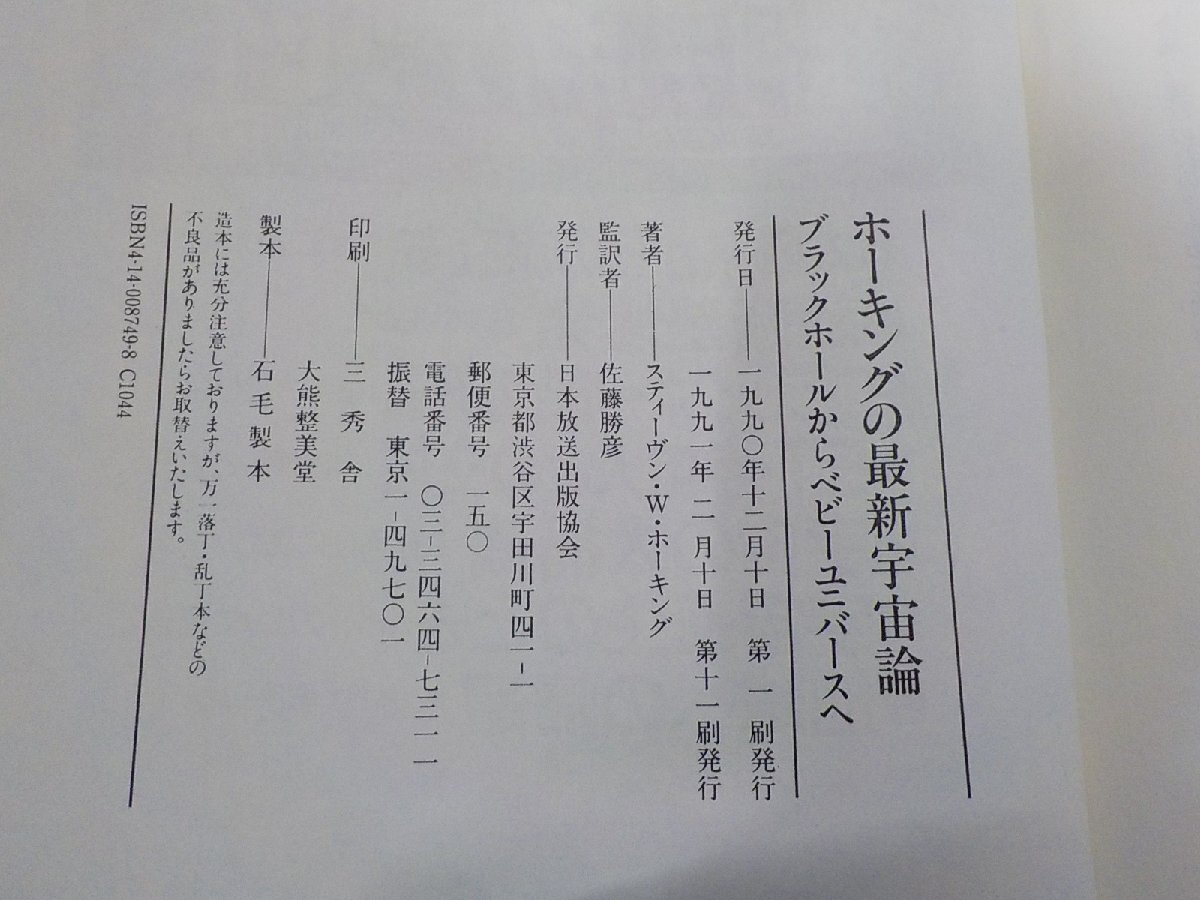 ホーキングの最新宇宙論
ブラックホールからベビーユニバースへ
発行日――一九九〇年十二月十日　第一刷発行
一九九一年二月十日　第十一刷発行
著者――スティーヴン・W・ホーキング
監訳者――佐藤勝彦
発行――日本放送出版協会
東京都渋谷区宇田川町四一-一
郵便番号　一五〇
電話番号　〇三-三四六四-七三一一
振替　東京一-四九七〇一
印刷――三秀舎
大熊整美堂
製本――石毛製本
造本には充分注意しておりますが、万一落丁・乱丁本などの
不良品がありましたらお取替えいたします。
ISBN4-14-008749-8 C1044